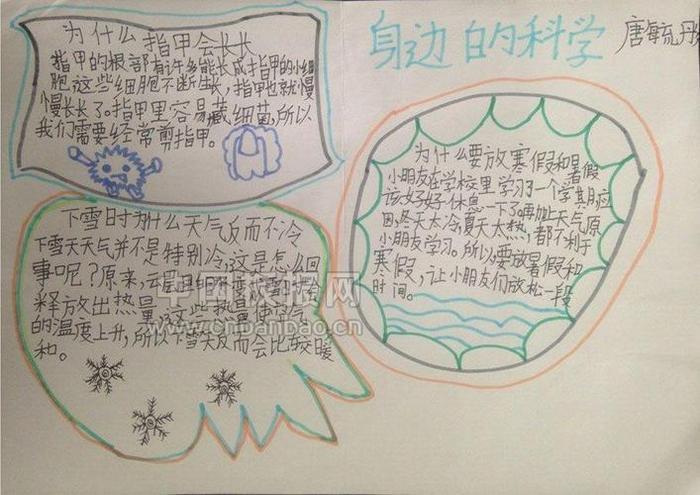 身边的科学
唐毓彤
为什么指甲会长长
指甲的根部有许多能长成指甲的小细
胞这些细胞不断生长,指甲也就慢
慢长长了。指甲里容易藏细菌,所以
我们需要经常剪指甲。
下雪时为什么天气反而不冷
下雪天天气并不是特别冷,这是怎么回
事呢?原来,云层里的水变雪时会
释放出热量,这些热量使空气
的温度上升,所以下雪天反而会比较暖
和。
为什么要放寒假和暑假
小朋友在学校里学习一个学期,应
该好好休息一下了。再加上天气原
因,冬天太冷,夏天太热,都不利于
小朋友学习。所以要放暑假和
寒假,让小朋友们放松一段
时间。
中国板报网
www.cnbanbao.cn